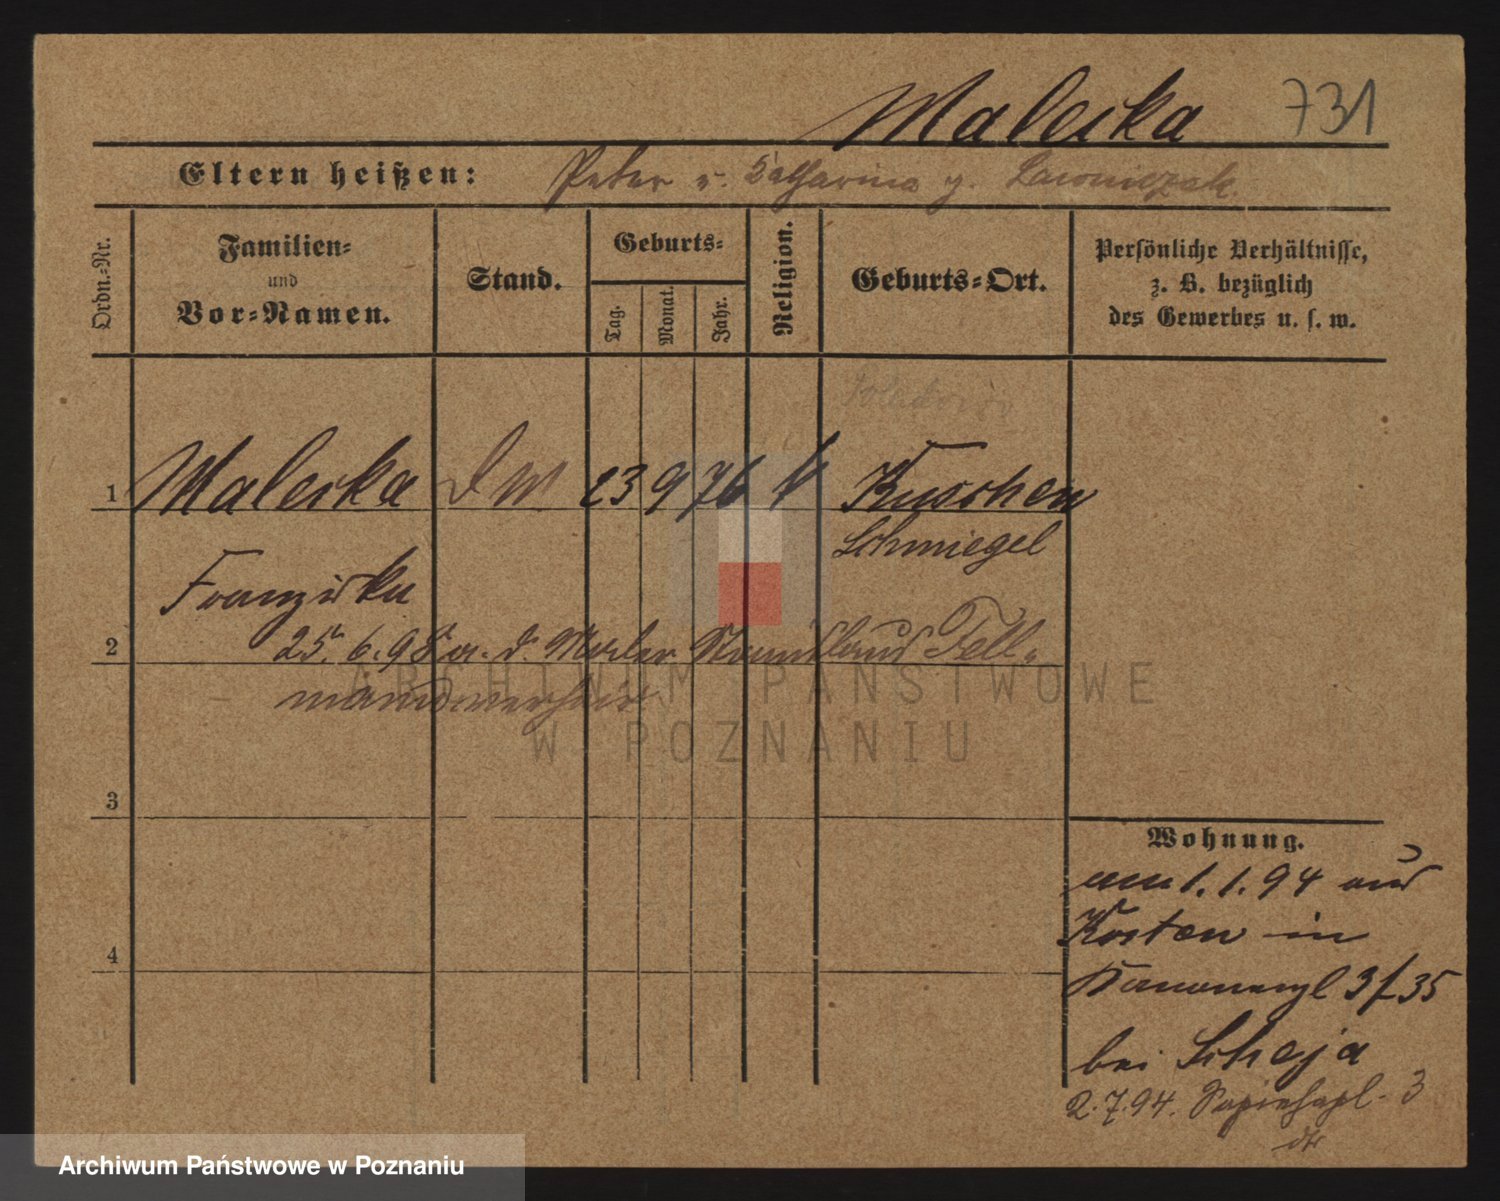 Maleika 731
Eltern heißen: Peter u. Catharina g. Lawniczak
Ordn.-Nr.
Familien-
und
Vor-Namen.
Stand.
Geburts-
Tag.
Monat.
Jahr.
Religion.
Geburts-Ort.
Persönliche Verhältnisse,
z. B. bezüglich
des Gewerbes u. s. w.
1 Maleika 23 9 76 k Kuschen
Schmiegel
Franziska
2 25. 6. 98 a. d. Maler
ARCHIWUM PAŃSTWOWE
W POZNANIU
3
4
Wohnung.
am 1. 1. 94 aus
Kosten in
Kanonenpl 3 f 35
bei Scheja
2. 7. 94. Sapiehapl. 3
Archiwum Państwowe w Poznaniu